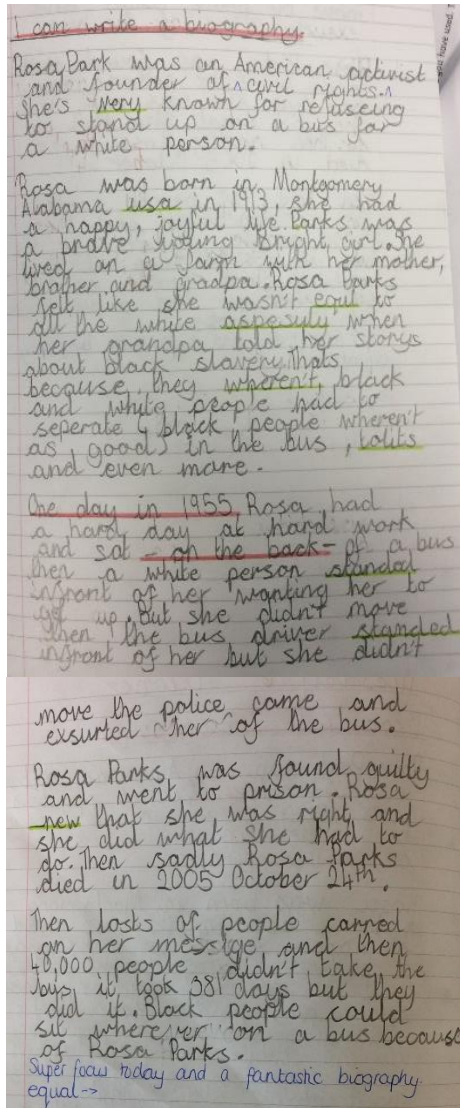 I can write a biography.
Rosa Park was an American activist
and founder of ^ civil rights. ^
She's very known for refuseing
to stand up on a bus for
a white person.
Rosa was born in Montgomery
Alabama usa in 1913, she had
a happy, joyful life. Parks was
a brave young bright girl. She
lived on a farm with her mother,
brother and gradpa. Rosa Parks
felt like she wasn't equl to
all the white aspesuly when
her grandpa told her storys
about black slavery. Thats
because they wheren't, black
and white people had to
seperate & black people wheren't
as good in the bus, tolits
and even more.
One day in 1955, Rosa had
a hard day at hard work
and sat - on the back - of a bus
then a white person standed
infront of her wanting her to
get up. But she didn't move
then the bus driver standed
infront of her but she didn't
move the police came and
exsurted her of the bus.
Rosa Parks was found guilty
and went to prison. Rosa
new that she was right and
she did what she had to
do. Then sadly Rosa Parks
died in 2005 October 24th.
Then losts of people carred
on her messige and then
40,000 people didn't take the
bus it took 381 days but they
did it. Black people could
sit wherever on a bus because
of Rosa Parks.
Super focus today and a fantastic biography.
equal ->